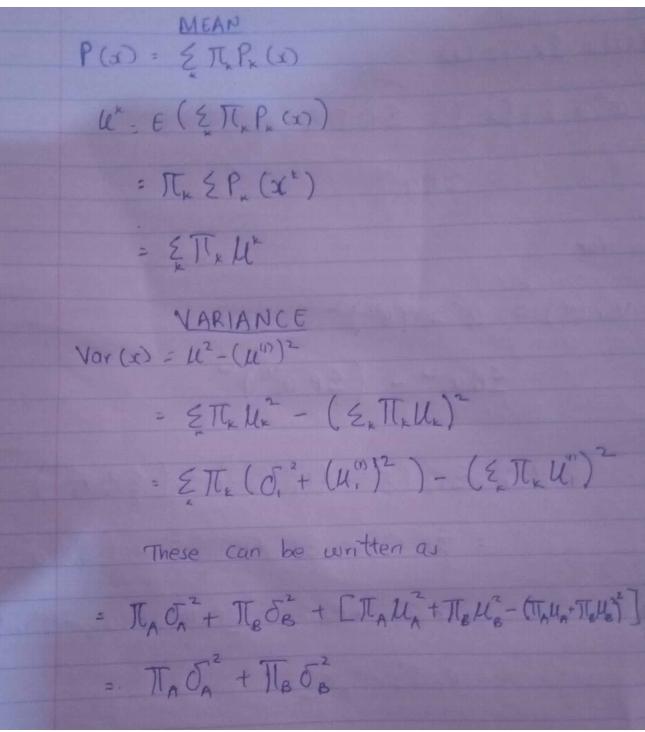 MEAN
P(x) = Σₖ πₖ Pₖ(x)
μᵏ = E(Σₖ πₖ Pₖ(x))
= πₖ Σ Pₖ(xᵏ)
= Σₖ πₖ μᵏ
VARIANCE
Var(x) = μ² - (μ⁽¹⁾)²
= Σₖ πₖ μₖ² - (Σₖ πₖ μₖ)²
= Σₖ πₖ (σ₁² + (μ₁⁽¹⁾)²) - (Σₖ πₖ μ⁽¹⁾)²
These can be written as
= π_A σ_A² + π_B σ_B² + [π_A μ_A² + π_B μ_B² - (π_A μ_A + π_B μ_B)²]
= π_A σ_A² + π_B σ_B²